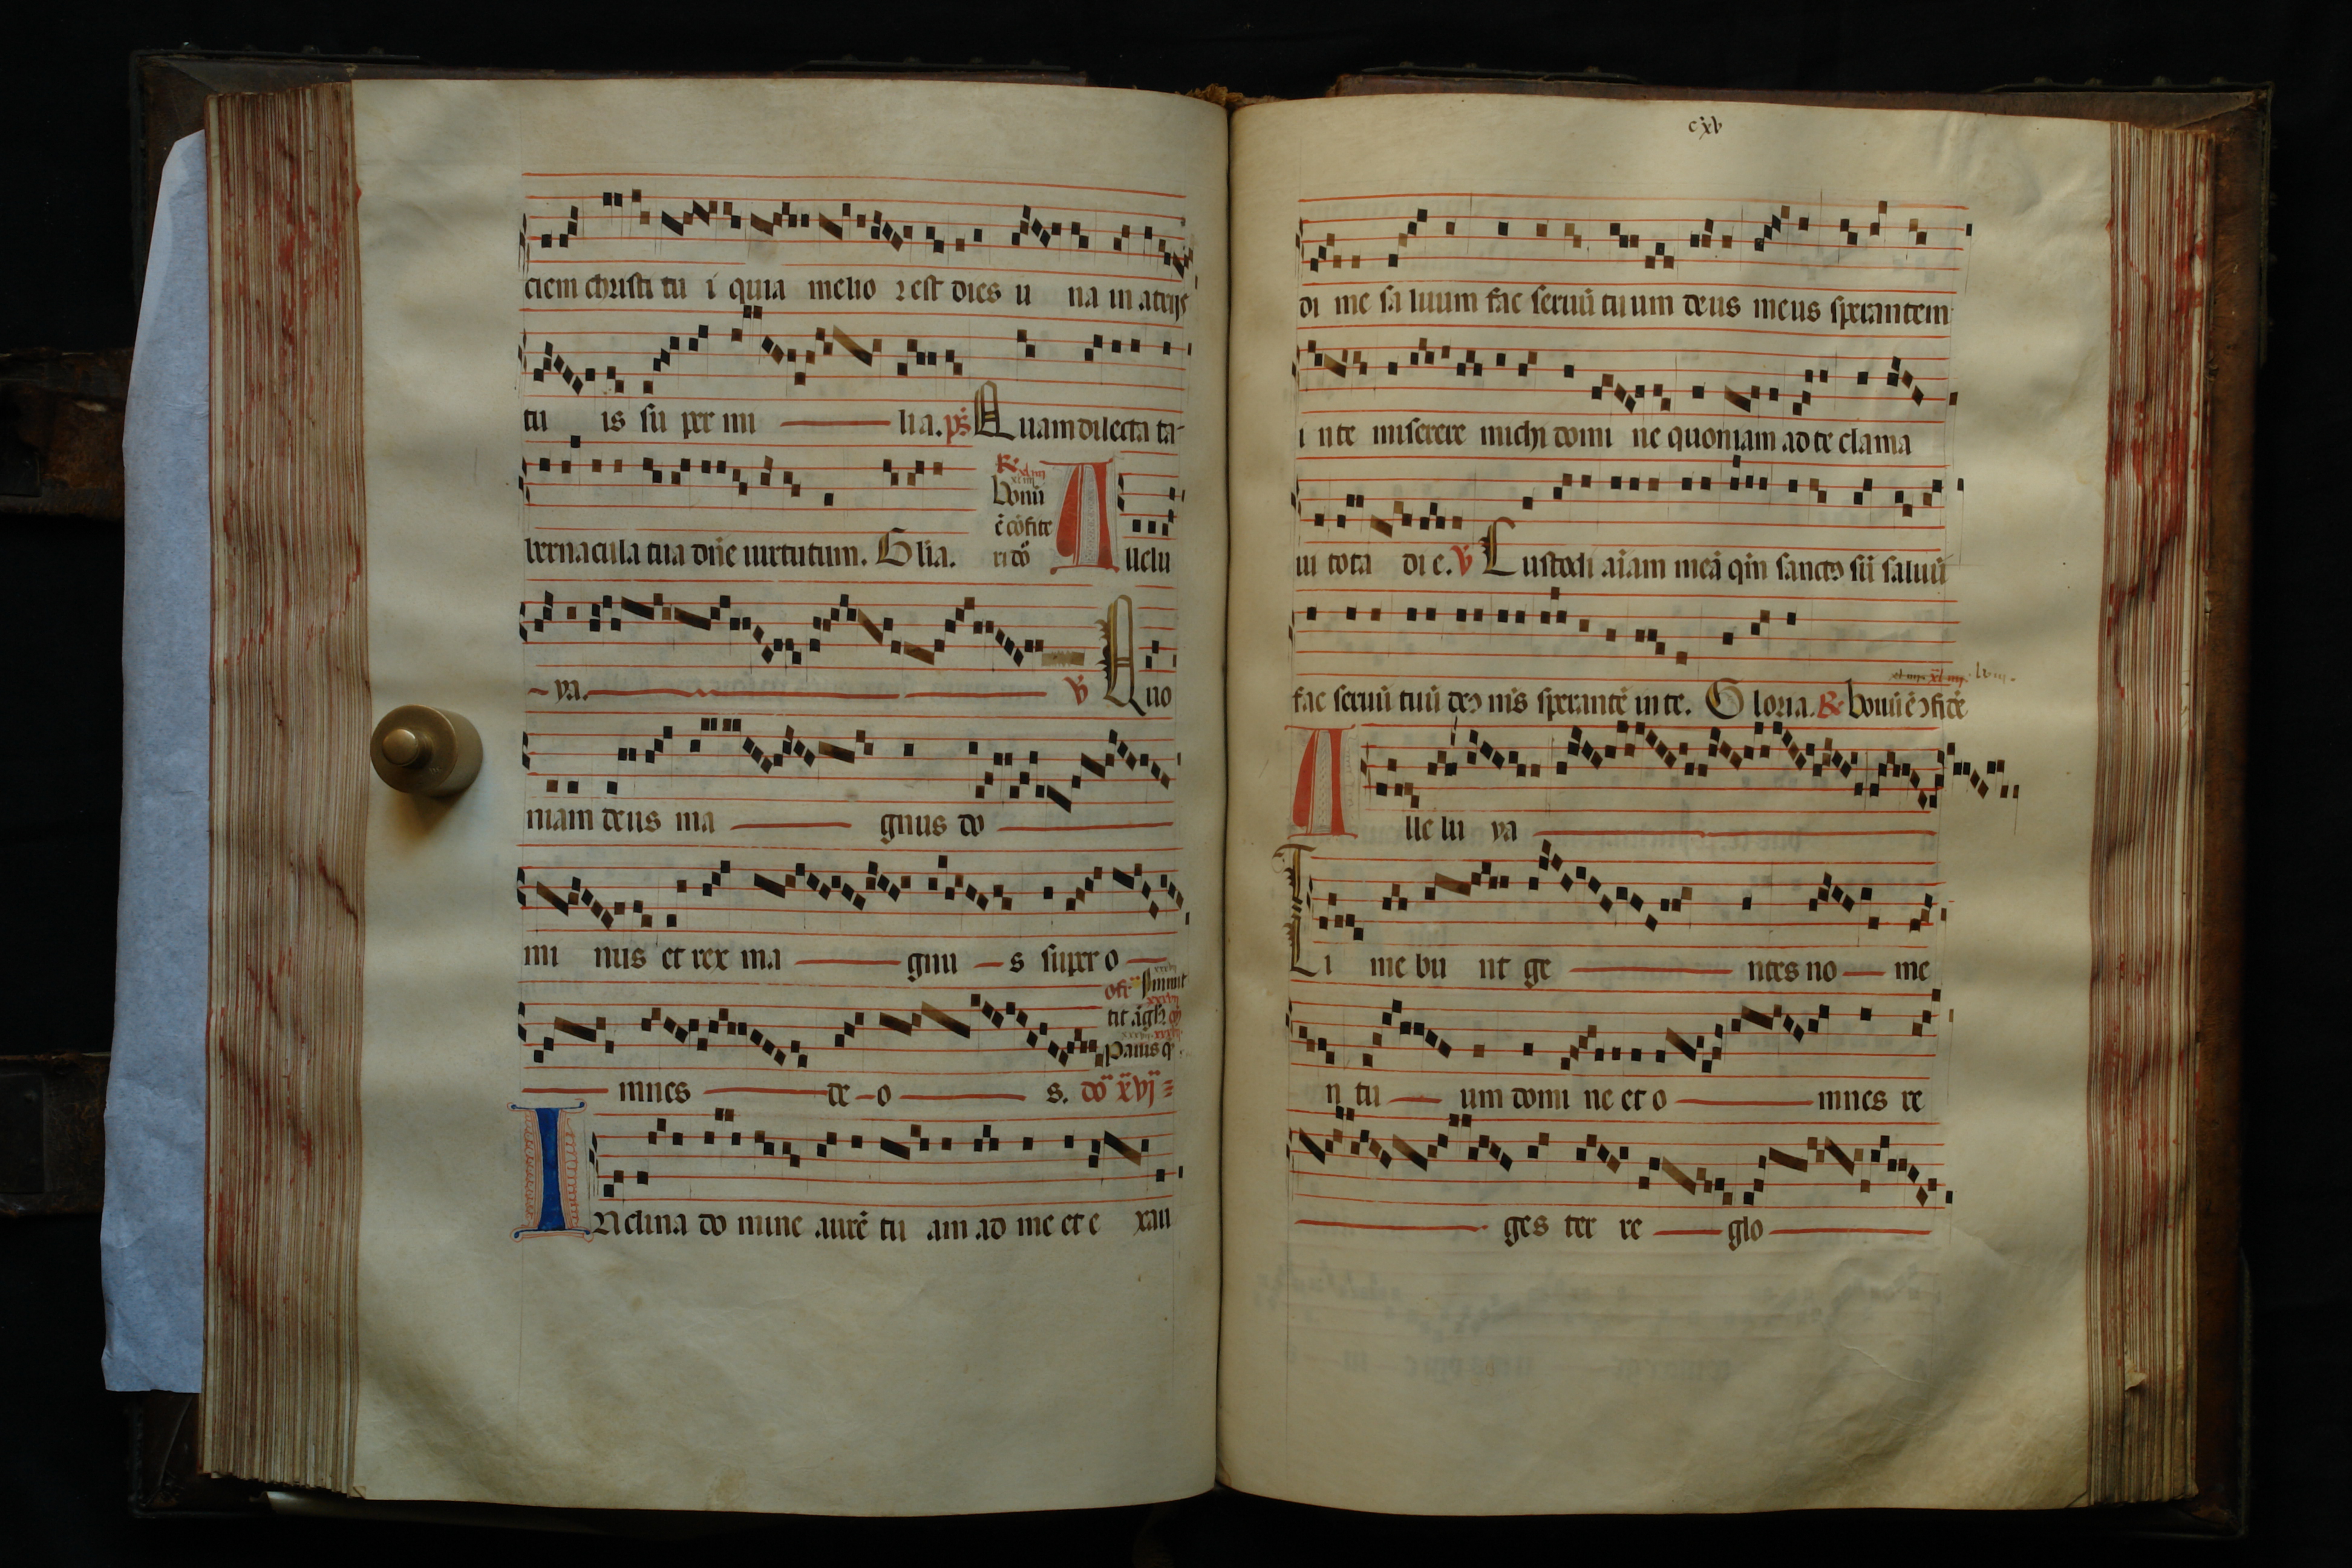 ciem christi tu i quia melio r est dies u na in atrijs
tu is su per mi lia. ps̃ Quam dilecta ta-
bernacula tua dñe uirtutum. Glia. R. Bonũ ẽ cõfite ri dõ Allelu
ya. ℣ Quo
niam deus ma gnus do
mi nus et rex ma gnu s super o
mnes de o s. dõ xvj
INclina do mine aurẽ tu am ad me et e xau
cxv
di me sa luum fac seruũ tuum deus meus sperantem
i n te miserere michi domi ne quoniam ad te clama
ui tota di e. ℣ Custodi aĩam meã qm̃ sanctꝰ sũ saluũ
fac seruũ tuũ deꝰ ms̃ sperantẽ in te. Gloria. R. bonũ ẽ ↄfitẽ
A lle lu ya
Ti me bu nt ge ntes no me
n tu um domi ne et o mnes re
ges ter re glo